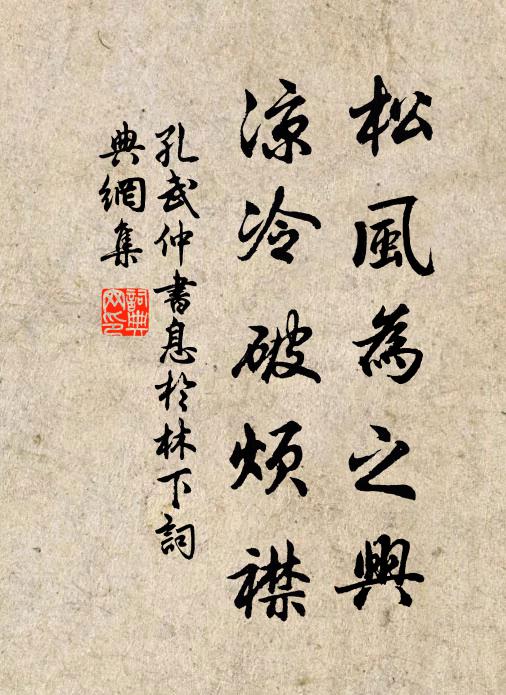 松風為之興
涼冷破煩襟
孔武仲書息於林下詞
典網集
詞典网印